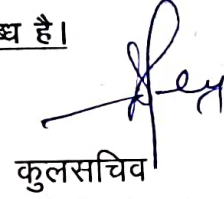 ब्ध है।
कुलसचिव